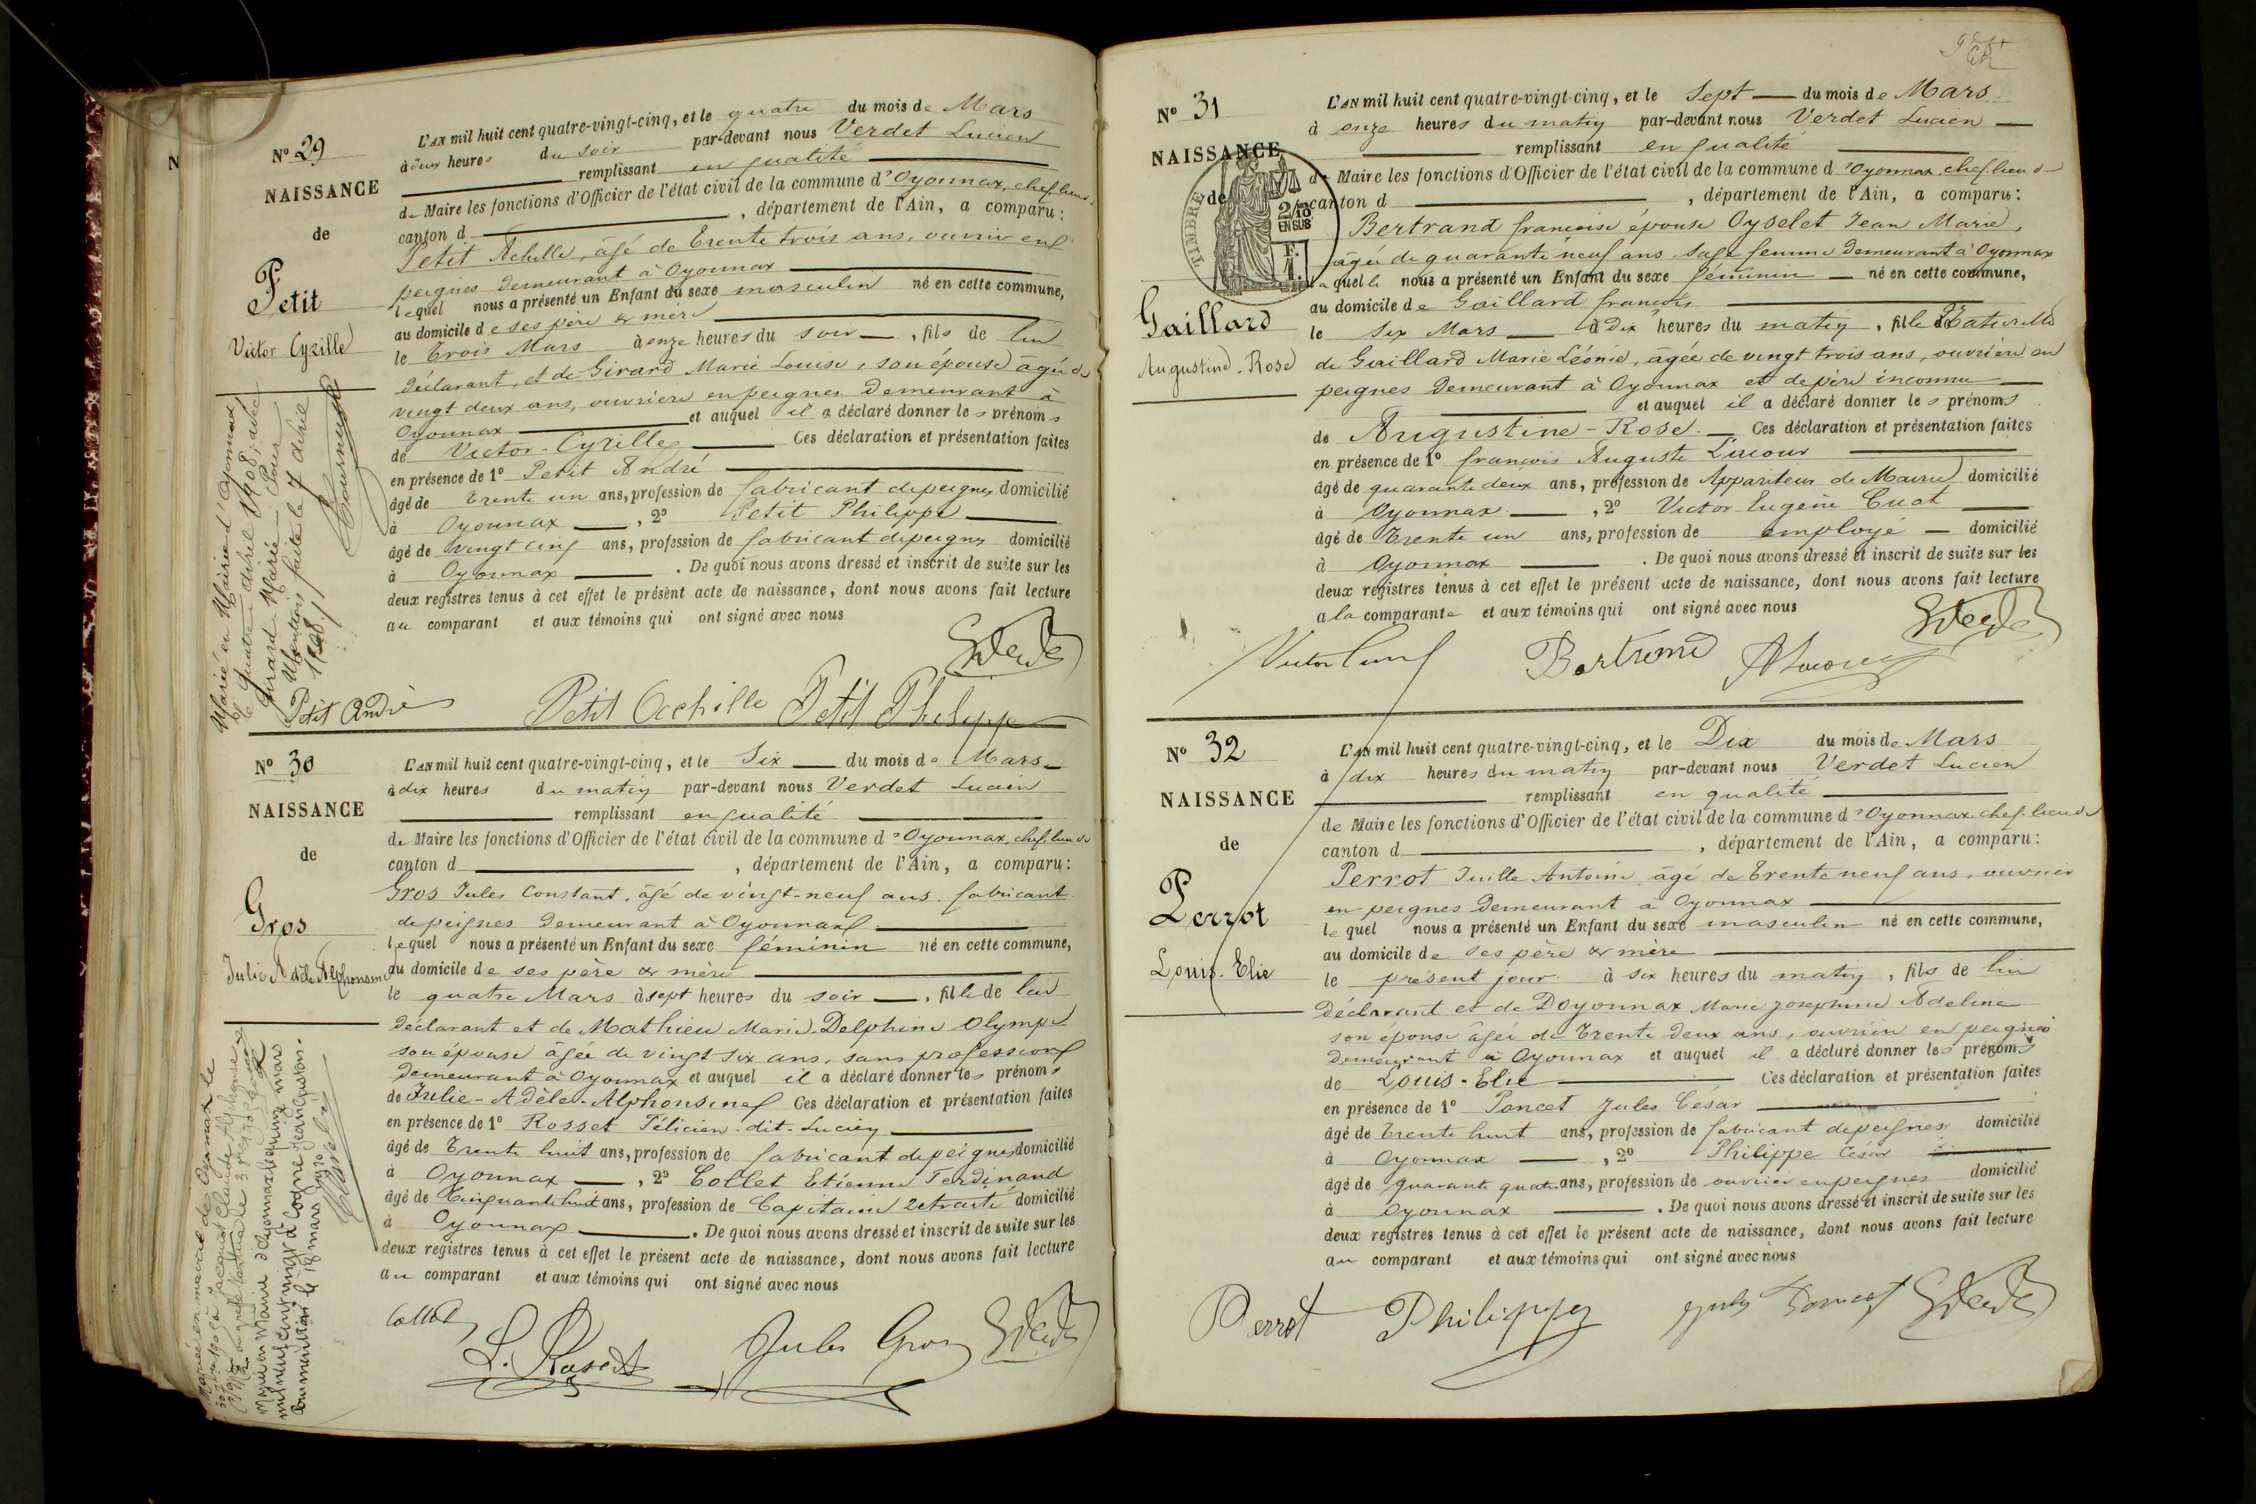 N
Nº 29
NAISSANCE
de
Petit
Victor Cyrille
L'AN mil huit cent quatre-vingt-cinq, et le quatre du mois de Mars
à deux heures du soir par-devant nous Verdet Lucien
remplissant en qualité
de Maire les fonctions d'Officier de l'état civil de la commune d'Oyonnax, chef-lieu de
canton d , département de l'Ain, a comparu:
Petit Achille, âgé de trente trois ans, ouvrier en
peignes demeurant à Oyonnax
lequel nous a présenté un Enfant du sexe masculin né en cette commune,
au domicile de ses père & mère
le trois Mars à onze heures du soir , fils de lui
déclarant, et de Girard Marie Louise, son épouse âgée de
vingt deux ans, ouvrière en peignes demeurant à
Oyonnax et auquel il a déclaré donner les prénoms
de Victor-Cyrille Ces déclaration et présentation faites
en présence de 1º Petit André
âgé de trente un ans, profession de fabricant de peignes domicilié
à Oyonnax , 2º Petit Philippe
âgé de vingt cinq ans, profession de fabricant de peignes domicilié
à Oyonnax . De quoi nous avons dressé et inscrit de suite sur les
deux registres tenus à cet effet le présent acte de naissance, dont nous avons fait lecture
au comparant et aux témoins qui ont signé avec nous
Marié en Mairie d'Oyonnax
le quatre avril 1908, avec
Girard Marie
Mention faite le 7 avril
1908
Petit André Petit Achille Petit Philippe
Nº 30
NAISSANCE
de
Gros
Julie Adèle Alphonsine
L'AN mil huit cent quatre-vingt-cinq, et le Six du mois de Mars
à dix heures du matin par-devant nous Verdet Lucien
remplissant en qualité
de Maire les fonctions d'Officier de l'état civil de la commune d'Oyonnax, chef-lieu de
canton d , département de l'Ain, a comparu:
Gros Jules Constant, âgé de vingt-neuf ans, fabricant
de peignes demeurant à Oyonnax
lequel nous a présenté un Enfant du sexe féminin né en cette commune,
au domicile de ses père & mère
le quatre Mars à sept heures du soir , fille de lui
déclarant et de Mathieu Marie-Delphine Olympe
son épouse âgée de vingt six ans, sans profession
demeurant à Oyonnax et auquel il a déclaré donner les prénoms
de Julie-Adèle-Alphonsine Ces déclaration et présentation faites
en présence de 1º Rosset Félicien-dit-Lucien
âgé de trente huit ans, profession de fabricant de peignes domicilié
à Oyonnax , 2º Collet Etienne Ferdinand
âgé de Cinquante huit ans, profession de Capitaine retraité domicilié
à Oyonnax . De quoi nous avons dressé et inscrit de suite sur les
deux registres tenus à cet effet le présent acte de naissance, dont nous avons fait lecture
au comparant et aux témoins qui ont signé avec nous
Mariée en mairie de Oyonnax le
Marié en Mairie d'Oyonnax le quinze mars
mil neuf cent vingt à Cogne Jean Gustave.
Pour mention le 18 mars 1920
Collet L. Rosset Jules Gros
Nº 31
NAISSANCE
de
TIMBRE
2/10
EN SUS
F.
1.
Gaillard
Augustine-Rose
L'AN mil huit cent quatre-vingt-cinq, et le Sept du mois de Mars
à onze heures du matin par-devant nous Verdet Lucien
remplissant en qualité
de Maire les fonctions d'Officier de l'état civil de la commune d'Oyonnax chef-lieu de
canton d , département de l'Ain, a comparu:
Bertrand françoise épouse Oyselet Jean Marie,
âgée de quarante neuf ans sage femme demeurant à Oyonnax
laquelle nous a présenté un Enfant du sexe féminin né en cette commune,
au domicile de Gaillard françois
le six Mars à dix heures du matin , fille Naturelle
de Gaillard Marie Léonie, âgée de vingt trois ans, ouvrière en
peignes demeurant à Oyonnax et de père inconnu
et auquel il a déclaré donner les prénoms
de Augustine-Rose. Ces déclaration et présentation faites
en présence de 1º françois Auguste Lacour
âgé de quarante deux ans, profession de Appariteur de Mairie domicilié
à Oyonnax , 2º Victor Eugène Cuat
âgé de trente un ans, profession de employé domicilié
à Oyonnax . De quoi nous avons dressé et inscrit de suite sur les
deux registres tenus à cet effet le présent acte de naissance, dont nous avons fait lecture
a la comparante et aux témoins qui ont signé avec nous
Bertrand
Nº 32
NAISSANCE
de
Perrot
Louis-Elie
L'AN mil huit cent quatre-vingt-cinq, et le Dix du mois de Mars
à dix heures du matin par-devant nous Verdet Lucien
remplissant en qualité
de Maire les fonctions d'Officier de l'état civil de la commune d'Oyonnax chef-lieu de
canton d , département de l'Ain, a comparu:
Perrot Antoine, âgé de trente neuf ans, ouvrier
en peignes demeurant à Oyonnax
lequel nous a présenté un Enfant du sexe masculin né en cette commune,
au domicile de ses père & mère
le présent jour à six heures du matin , fils de lui
déclarant et de Doyonnax Marie Josephine Adeline
son épouse âgée de trente deux ans, ouvrière en peignes
demeurant à Oyonnax et auquel il a déclaré donner les prénoms
de Louis-Elie Ces déclaration et présentation faites
en présence de 1º Poncet Jules César
âgé de trente huit ans, profession de fabricant de peignes domicilié
à Oyonnax , 2º Philippe César
âgé de quarante quatre ans, profession de ouvrier en peignes domicilié
à Oyonnax . De quoi nous avons dressé et inscrit de suite sur les
deux registres tenus à cet effet le présent acte de naissance, dont nous avons fait lecture
au comparant et aux témoins qui ont signé avec nous
Perrot Philippe Jules Poncet